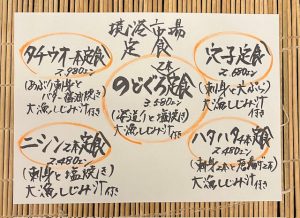 境港市場
定食
タチウオ一本定食
2,980エン
(あぶり刺身と
バター醤油焼き)
大漁しじみ汁付き
穴子定食
2,680エン
(刺身と天ぷら)
大漁しじみ汁付き
2本
のどぐろ定食
3,580エン
(姿造りと塩焼き)
大漁しじみ汁付き
ニシン2本定食
2,480エン
(刺身と塩焼き)
大漁しじみ汁付き
ハタハタ4本定食
2,480エン
(刺身2本と唐揚げ2本)
大漁しじみ汁付き